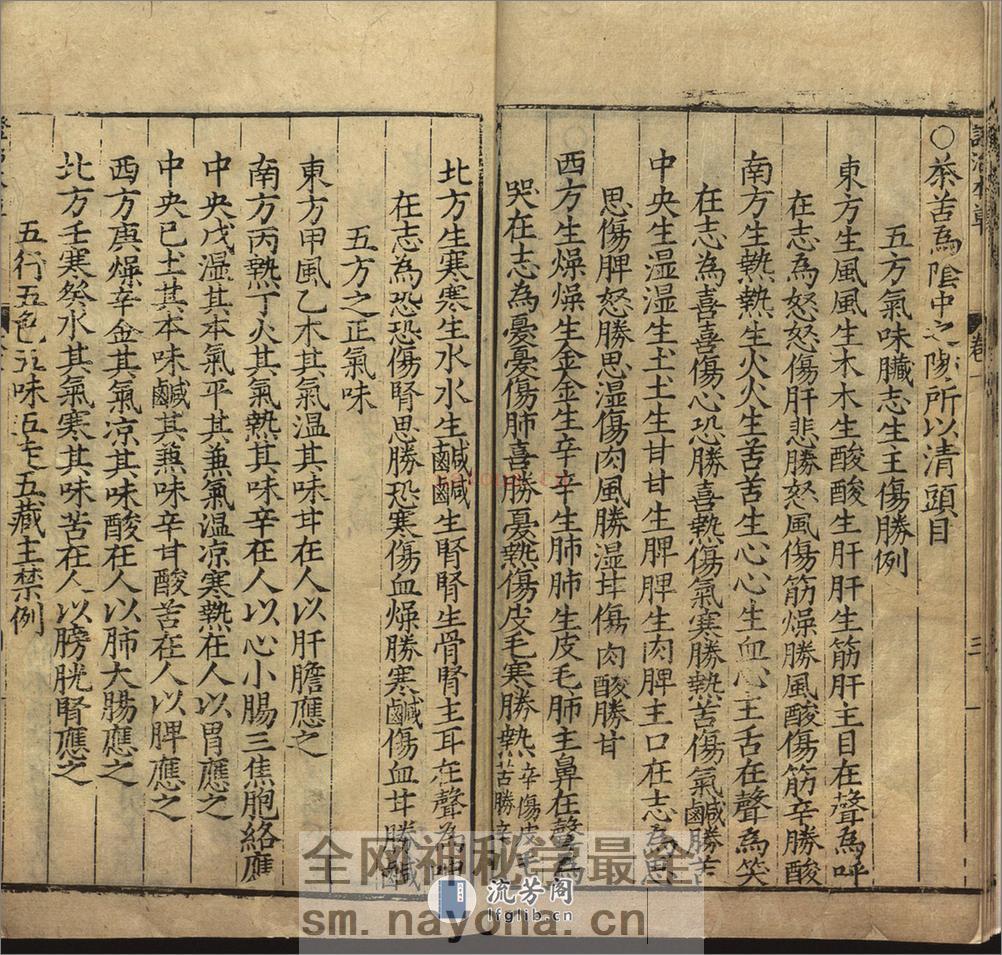 ○茶苦為陰中之陽所以清頭目
五方氣味臟志生主傷勝例
東方生風風生木木生酸酸生肝肝生筋肝主目在聲為呼
在志為怒怒傷肝悲勝怒風傷筋燥勝風酸傷筋辛勝酸
南方生熱熱生火火生苦苦生心心生血心主舌在聲為笑
在志為喜喜傷心恐勝喜熱傷氣寒勝熱苦傷氣鹹勝苦
中央生湿湿生土土生甘甘生脾脾生肉脾主口在志為思
思傷脾怒勝思湿傷肉風勝湿甘傷肉酸勝甘
西方生燥燥生金金生辛辛生肺肺生皮毛肺主鼻在聲為
哭在志為憂憂傷肺喜勝憂熱傷皮毛寒勝熱辛傷皮毛苦勝辛
卷一
三
北方生寒寒生水水生鹹鹹生腎腎生骨腎主耳在聲為呻
在志為恐恐傷腎思勝恐寒傷血燥勝寒鹹傷血甘勝鹹
五方之正氣味
東方甲風乙木其氣温其味甘在人以肝膽應之
南方丙熱丁火其氣熱其味辛在人以心小腸三焦胞絡應
中央戊湿其本氣平其兼氣温凉寒熱在人以胃應之
中央已土其本味鹹其兼味辛甘酸苦在人以脾應之
西方庚燥辛金其氣凉其味酸在人以肺大腸應之
北方壬寒癸水其氣寒其味苦在人以膀胱腎應之
五行五色五味五走五藏主禁例
全网神秘学最全
sm.nayona.cn
流芳阁
lfglib.cn